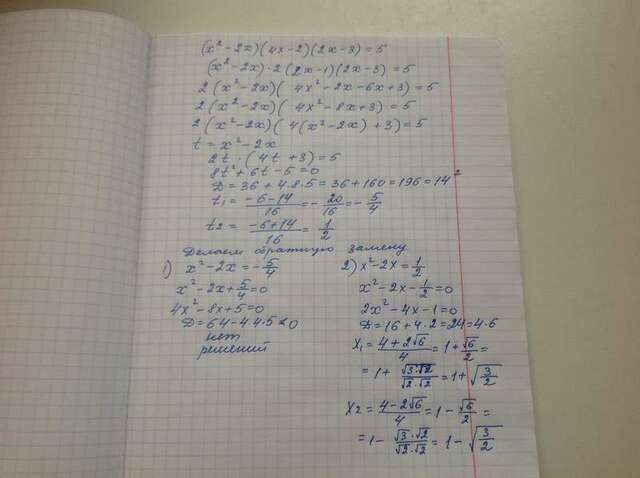 (x² - 2x)(4x - 2)(2x - 3) = 5
(x² - 2x) · 2(2x - 1)(2x - 3) = 5
2(x² - 2x)(4x² - 2x - 6x + 3) = 5
2(x² - 2x)(4x² - 8x + 3) = 5
2(x² - 2x)(4(x² - 2x) + 3) = 5
t = x² - 2x
2t · (4t + 3) = 5
8t² + 6t - 5 = 0
D = 36 + 4·8·5 = 36 + 160 = 196 = 14²
t₁ = (-6-14)/16 = -20/16 = -5/4
t₂ = (-6+14)/16 = 1/2
Делаем обратную замену
1) x² - 2x = -5/4
x² - 2x + 5/4 = 0
4x² - 8x + 5 = 0
D = 64 - 4·4·5 < 0
нет
решений
2) x² - 2x = 1/2
x² - 2x - 1/2 = 0
2x² - 4x - 1 = 0
D = 16 + 4·2 = 24 = 4·6
x₁ = (4+2√6)/4 = 1 + √6/2 =
= 1 + (√3·√2)/(√2·√2) = 1 + √(3/2)
x₂ = (4-2√6)/4 = 1 - √6/2 =
= 1 - (√3·√2)/(√2·√2) = 1 - √(3/2)